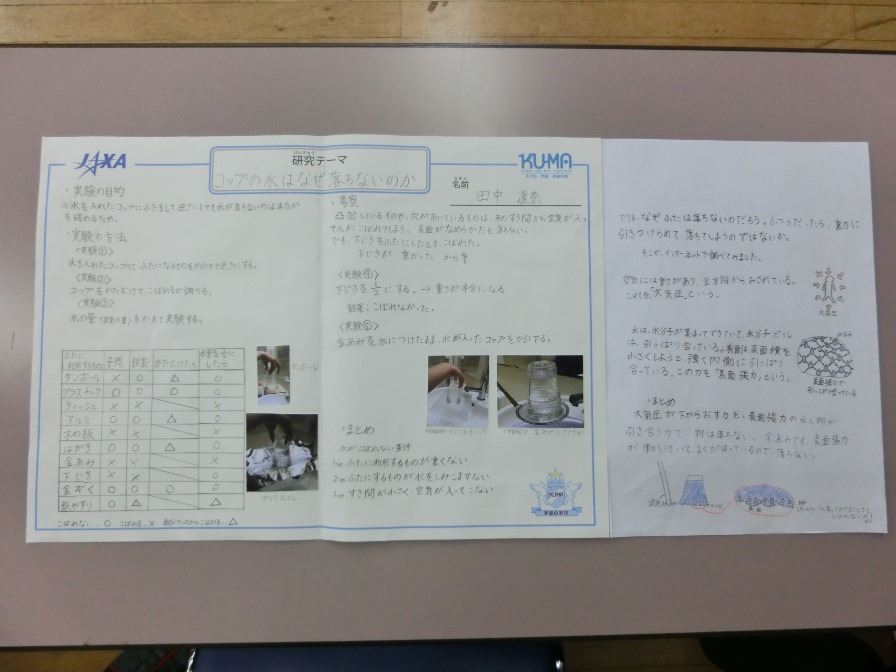 JAXA
けんきゅう
研究テーマ
コップの水はなぜ落ちないのか
KU-MA
子ども・宇宙・未来の会
なまえ
名前
田中
・実験の目的
水を入れたコップにふたをして逆さにしても水が落ちないのは本当か
を確めるため。
・実験の方法
〈実験①〉
水を入れたコップに ふたになるものをかぶせて逆さにする。
〈実験②〉
コップをかたむけて、こぼれるか調べる。
〈実験③〉
水の量(空気の量)をかえて実験する。
ふたに
利用するもの 予想 結果 かたむけたら 水量を
したら
ダンボール × ○ △ ○
プラスチック ○ ○ ○ ○
ティッシュ × × ×
アルミ ○ ○ △ ○
木の板 × × ×
はがき ○ ○ △ ○
金あみ × × ×
下じき × × ○
金ぞく ○ ○ ○ ○
紙やすり ○ △ △
こぼれない…○ こぼれる…× △
ダンボール
アルミホイル
・考察
凸凹しているものや、穴があいているものは、そのすき間から空気が入っ
て水がこぼれてしまう。表面がなめらかだと落ちない。
でも、下じきをふたにしたとき、こぼれた。
下じきが 重かった から?
〈実験④〉
下じきを½にする。→ 重さが半分になる
結果:こぼれなかった。
金あみを水につけたまま、水が入ったコップをかぶせる。
・まとめ
水がこぼれない条件
ふたに利用するものが重くない
ふたにするものが水をしみこませない
すき間が小さく、空気が入ってこない
KU-MA
では、なぜ ふたは落ちないのだろう。ふつうだったら、重力に
引きつけられて 落ちてしまうのではないか。
そこで、インターネットで調べてみました。
空気には重さがあり、全方向からおされている。
これを"大気圧"という。
大気圧
水は、水分子が集まってできていて、水分子どうし
は、引っぱり合っている。表面は表面積を
小さくしようと、強く内側に引っぱり
合っている。この力を"表面張力"という。
水分子
表面張力で
引っぱり合っている
まとめ
大気圧が下からおす力と、表面張力の
引き合う力で、 は落ちない。金あみでも、表面張力
が働いていて、まくがはっているので、落ちない。